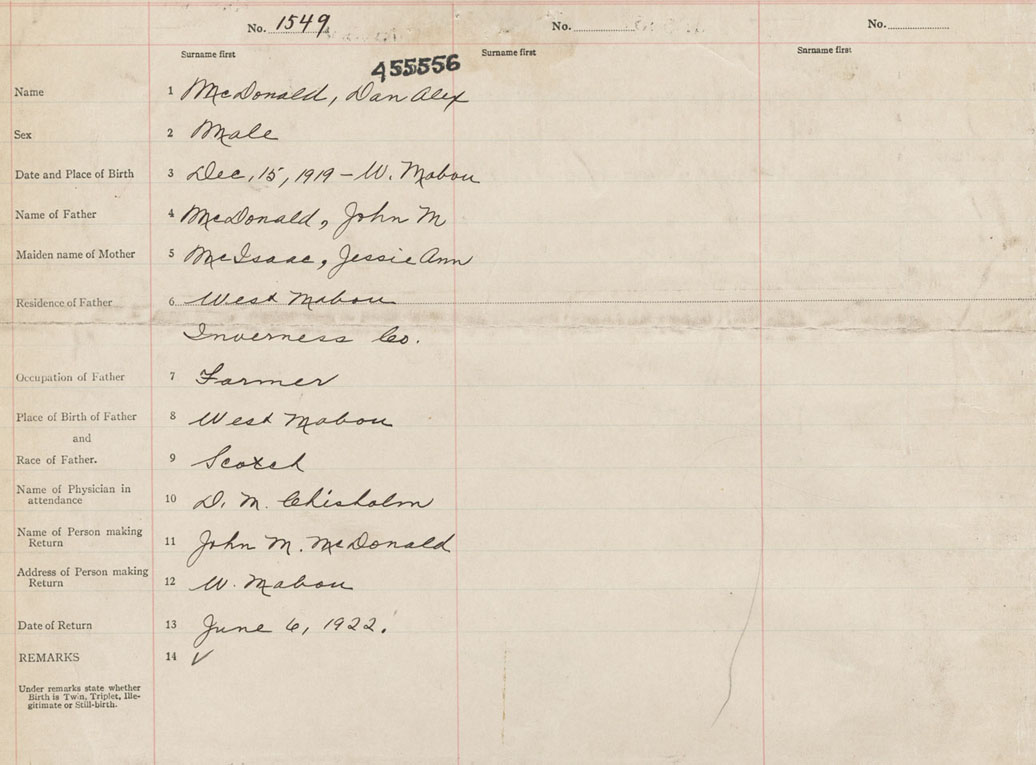 No. 1549 No. No.
Surname first Surname first Surname first
455556
Name 1 McDonald, Dan Alex
Sex 2 Male
Date and Place of Birth 3 Dec, 15, 1919 - W. Mabou
Name of Father 4 McDonald, John M
Maiden name of Mother 5 McIsaac, Jessie Ann
Residence of Father 6 West Mabou
Inverness Co.
Occupation of Father 7 Farmer
Place of Birth of Father 8 West Mabou
and
Race of Father. 9 Scotch
Name of Physician in
attendance 10 D. M. Chisholm
Name of Person making
Return 11 John M. McDonald
Address of Person making
Return 12 W. Mabou
Date of Return 13 June 6, 1922.
REMARKS 14 ✓
Under remarks state whether
Birth is Twin, Triplet, Ille-
gitimate or Still-birth.